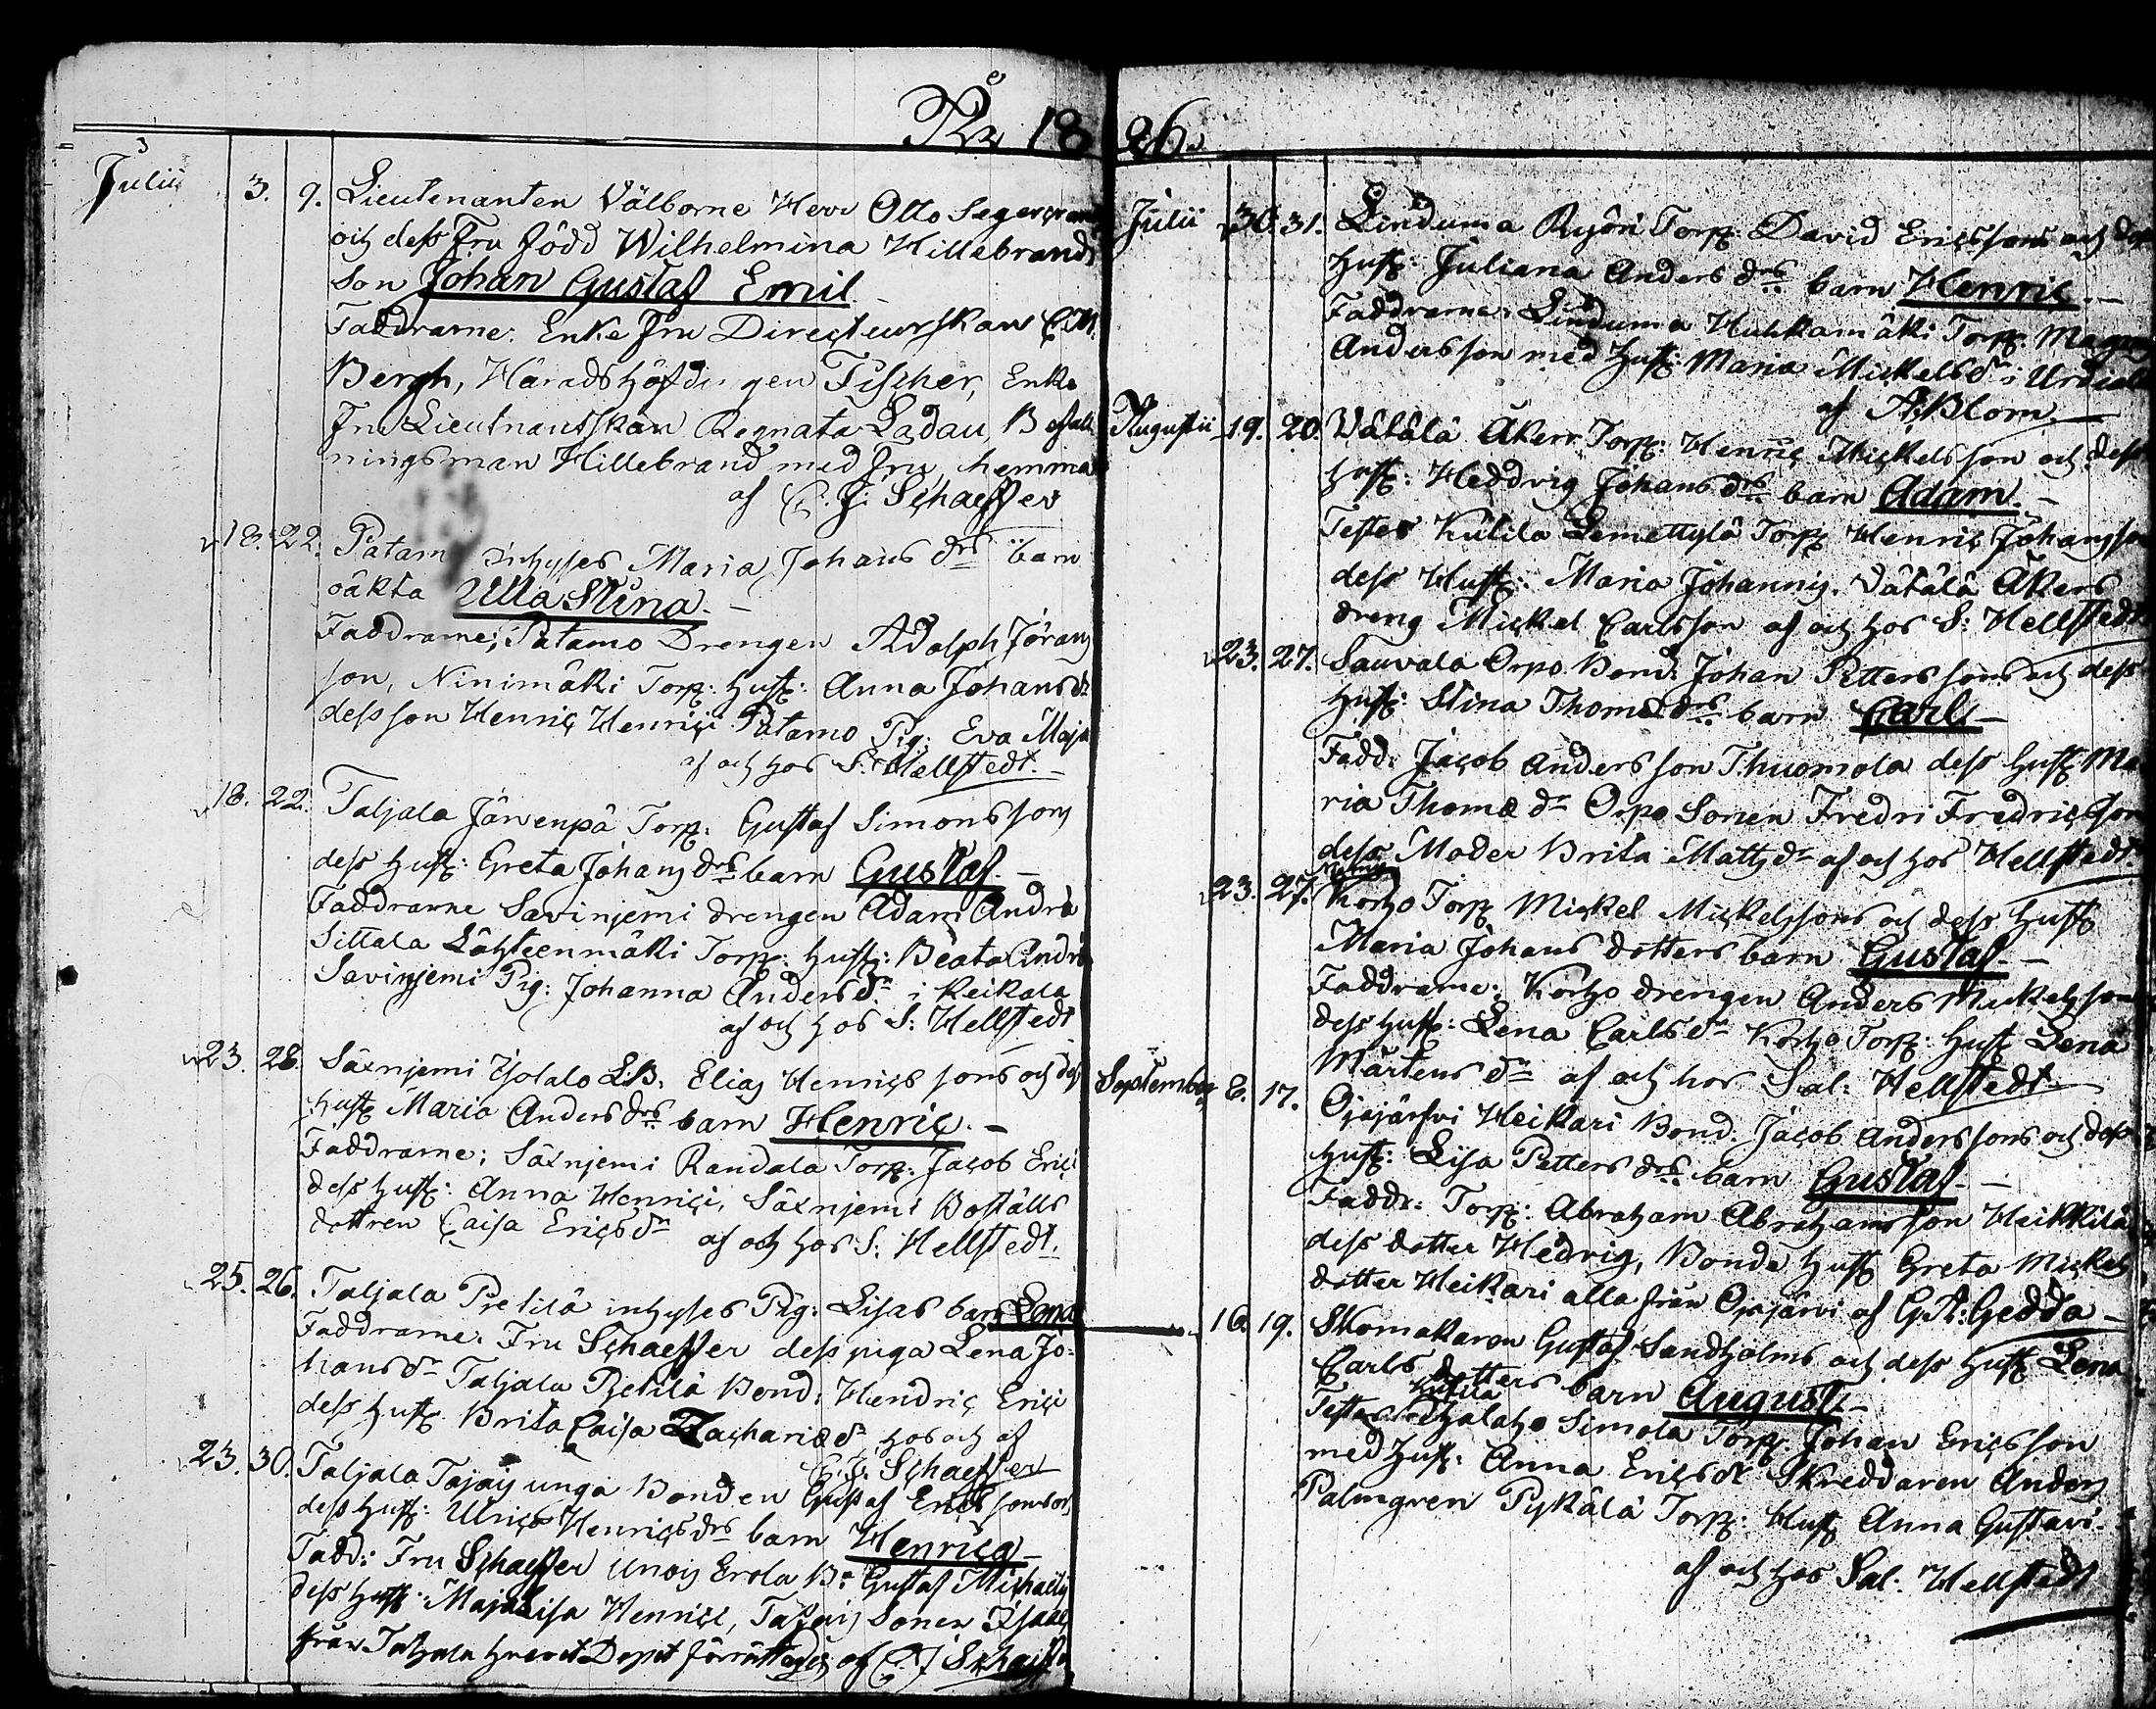 År 1826.
Julii 3. 9. Lieutenanten Välborne Herr Otto Segercrantz
och dess Fru född Wilhelmina Hillebrands
Son Johan Gustaf Emil
Faddrarne: Enke Fru Directeurskan C.M.
Bergh, Häradshöfdingen Fischer, Enke
Fru Lieutnantskan Regnata Ladau, Befall
ningsman Hillebrand med fru, hemma
af C. J. Schaeffer
18. 22. Patam inhyses Maria Johans drs barn
oäkta Ulla Stina. –
Faddrarne; Patamo Drengen Adolph Jörans
son, Ninimäki Torp: hust: Anna Johansdr
dess son Henric Henrici Patamo Pig: Eva Maja
af och hos S. Hellstedt. –
18. 22. Taljala Järvenpä Torp: Gustaf Simonssons
dess hust: Greta Johans drs barn Gustaf. –
Faddrarne Savinjemi drengen Adam Andrä
Sittala Lähteenmäki Torp: hust: Beata Andrä
Savinjemi Pig: Johanna Anders dr i Keikala
af och hos S: Hellstedt
23. 28. Säxnjemi Isotalo LB. Elias Henrics sons och dess
hust Maria Anders drs barn Henric. –
Faddrarne; Säxnjemi Randala Torp: Jacob Erici
dess hust: Anna Henrici, Säxnjemi Boställs
dottren Caisa Erics dr af och hos S. Hellstedt.
25. 26. Taljala Pretilä inhyses Pig: Lisas barn Lena
Faddrarne: Fru Schaeffer dess piga Lena Jo-
hans dr Taljala Pretilä Bond: Hendric Erici
dess hust. Brita Caisa Zachariæ dr hos och af
C. J. Schaeffer
23. 30. Taljala Tajais unga Bonden Gustaf Erics sons och
dess hust: Ulrica Henrics drs barn Henrica –
Fadd: Fru Schaeffer Unois Erola Br Gustaf Michaelis
dess hust: Maja Lisa Henrici, Tajais Sonen Isaac
från Taljala hvaret Dopet förrättades af C J Schaeffer
Julii 30. 31. Linduma Ryöri Torp: David Ericssons och dess
hust: Juliana Anders drs barn Henric. –
Faddrarne: Linduma Huhkamäki Torp: Magnus
Andersson med hust: Maria Mickels dr i Urdiala
af A. Blom. –
Augusti 19. 20. Vätälä Äkeri Torp: Henric Mickelsson och dess
hust: Heddvig Johans drs barn Adam. –
Testes Kulila Lemettylä Torp Henric Johansson
dess Hust: Maria Johannis. Vätälä Äkers
dreng Mickel Carlsson af och hos S: Hellstedt
23. 27. Sauvala Orpo Bond: Johan Petterssons och dess
hust: Stina Thomæ drs barn Carl –
Fadd: Jacob Andersson Thuomola dess hust Ma
ria Thomæ dr Orpo Sonen Fredri Fredricsson
dess Moder Brita Matts dr af och hos Hellstedt.
23. 27. Korho Torp Mickel Mickelssons och dess hust
Maria Johans dotters barn Gustaf. –
Faddrarne: Korho drengen Anders Mickelsson
dess hust: Lena Carls dr Korho Torp: hust Lena
Mårtens dr af och hos Sal: Hellstedt
September 6. 17. Ojajärfvi Heikari Bond. Jacob Anderssons och dess
hust: Lisa Petters drs barn Gustaf. –
Fadd: Torp: Abraham Abrahamsson Heikkilä
dess dotter Hedvig, Bonde hust Greta Mickels
dotter Heikari alla från Ojajärvi af G.A: Gedda –
16. 19. Skomakaren Gustaf Sandholms och dess hust Lena
Carls dotters barn August. –
Kulila
Testes Simola Torp. Johan Ericsson
med hust: Anna Erics dr Skreddaren Anders
Palmgren Pykälä Torp: Hust Anna Gustavi.
af och hos Sal. Hellstedt